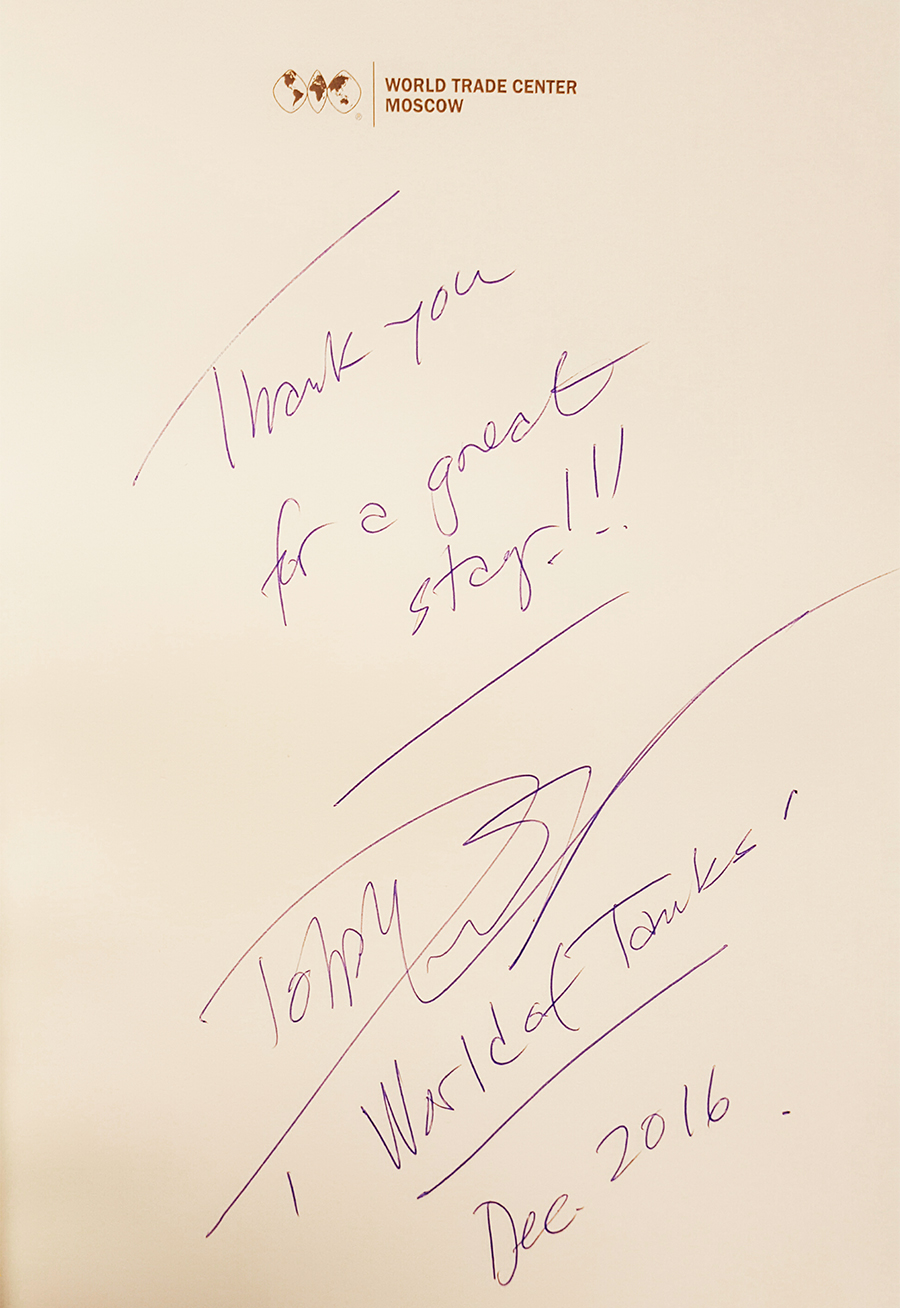 WORLD TRADE CENTER
MOSCOW
Thank you
for a great
stay!!!
'World of Tanks'
Dec. 2016